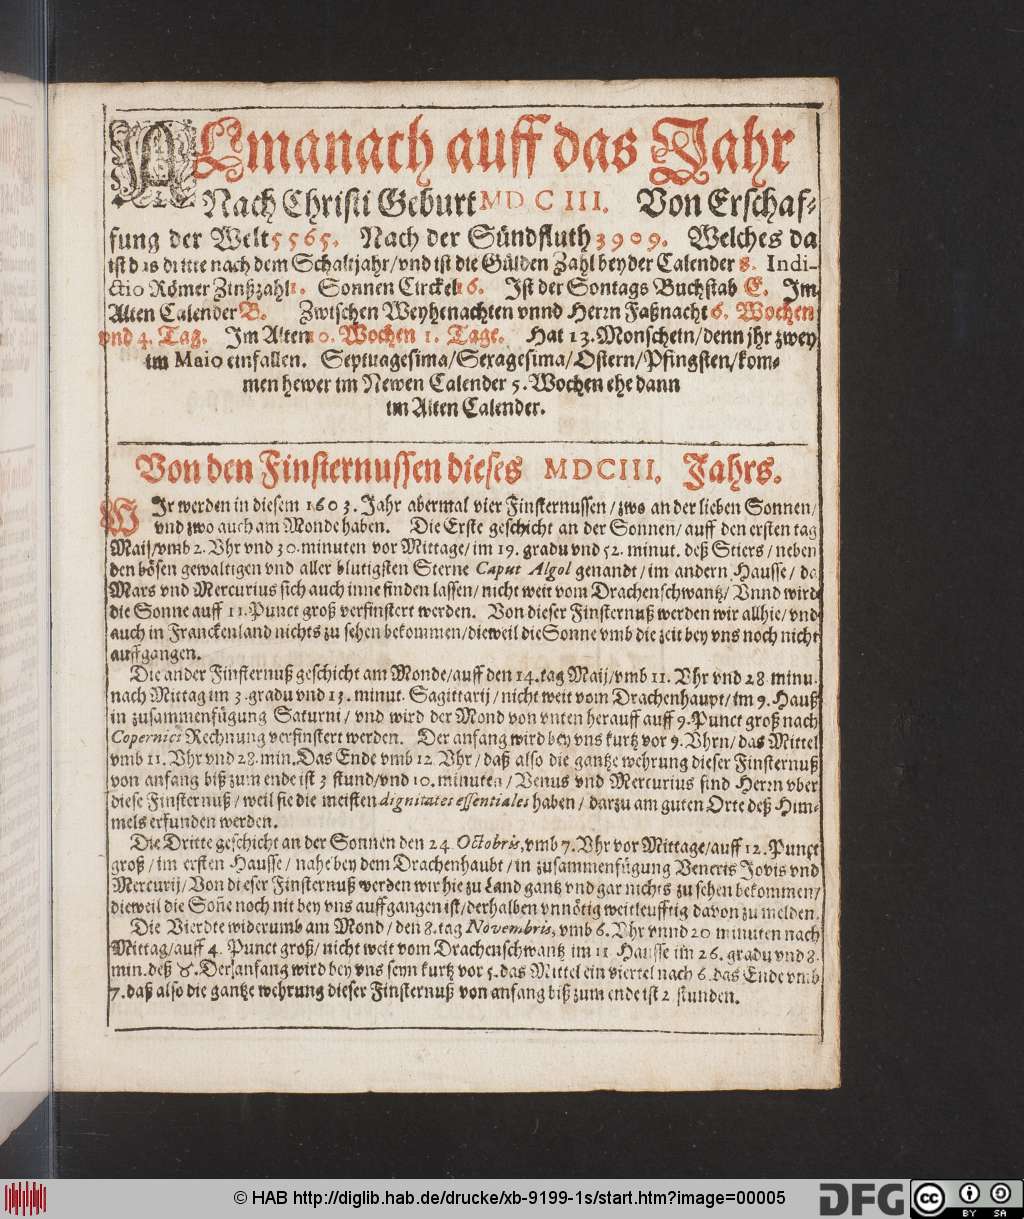 ALmanach auff das Jahr
Nach Christi Geburt MDCIII. Von Erschaf-
fung der Welt 5565. Nach der Sündfluth 3909. Welches da
ist das dritte nach dem Schaltjahr/vnd ist die Gülden Zahl beyder Calender 8. Indi-
ctio Römer Zinßzahl 1. Sonnen Circkel 16. Ist der Sontags Buchstab E. Im
Alten Calender B. Zwischen Weyhenachten vnnd Herrn Faßnacht 6. Wochen
vnd 4. Tag. Im Alten 10. Wochen 1. Tage. Hat 13. Monschein/denn jhr zwey
im Maio einfallen. Septuagesima/Sexagesima/Ostern/Pfingsten/kom-
men hewer im Newen Calender 5. Wochen ehe dann
im Alten Calender.
Von den Finsternussen dieses MDCIII. Jahrs.
WIr werden in diesem 1603. Jahr abermal vier Finsternussen/zwo an der lieben Sonnen/
vnd zwo auch am Monde haben. Die Erste geschicht an der Sonnen/auff den ersten tag
Maij/vmb 2. Vhr vnd 30. minuten vor Mittage/im 19. gradu vnd 52. minut. deß Stiers/neben
den bösen gewaltigen vnd aller blutigsten Sterne Caput Algol genandt/im andern Hausse/da
Mars vnd Mercurius sich auch inne finden lassen/nicht weit vom Drachenschwantz/Vnnd wird
die Sonne auff 11. Punct groß verfinstert werden. Von dieser Finsternuß werden wir allhie/vnd
auch in Franckenland nichts zu sehen bekommen/dieweil die Sonne vmb die zeit bey vns noch nicht
auffgangen.
Die ander Finsternuß geschicht am Monde/auff den 14. tag Maij/vmb 11. Vhr vnd 28 minu.
nach Mittag im 3. gradu vnd 13. minut. Sagittarij/nicht weit vom Drachenhaupt/im 9. Hauß
in zusammenfügung Saturni/vnd wird der Mond von vnten herauff auff 9. Punct groß nach
Copernici Rechnung verfinstert werden. Der anfang wird bey vns kurtz vor 9. Vhrn/das Mittel
vmb 11. Vhr vnd 28. min. Das Ende vmb 12 Vhr/daß also die gantze wehrung dieser Finsternuß
von anfang biß zum ende ist 3 stund/vnd 10. minuten/Venus vnd Mercurius sind Herrn vber
diese Finsternuß/weil sie die meisten dignitates essentiales haben/darzu am guten Orte deß Him-
mels erfunden werden.
Die Dritte geschicht an der Sonnen den 24. Octobris, vmb 7. Vhr vor Mittage/auff 12. Punct
groß/im ersten Hausse/nahe bey dem Drachenhaubt/in zusammenfügung Veneris Jovis vnd
Mercurij/Von dieser Finsternuß werden wir hie zu Land gantz vnd gar nichts zu sehen bekommen/
dieweil die Soñe noch nit bey vns auffgangen ist/derhalben vnnötig weitleufftig davon zu melden.
Die Vierdte widerumb am Mond/den 8. tag Novembris, vmb 6. Vhr vnnd 20 minuten nach
Mittag/auff 4. Punct groß/nicht weit vom Drachenschwantz im 11 Hausse im 26. gradu vnd 8.
min. deß ♉. Der anfang wird bey vns seyn kurtz vor 5. das Mittel ein viertel nach 6. das Ende vmb
7. daß also die gantze wehrung dieser Finsternuß von anfang biß zum ende ist 2 stunden.
© HAB http://diglib.hab.de/drucke/xb-9199-1s/start.htm?image=00005
DFG cc BY SA